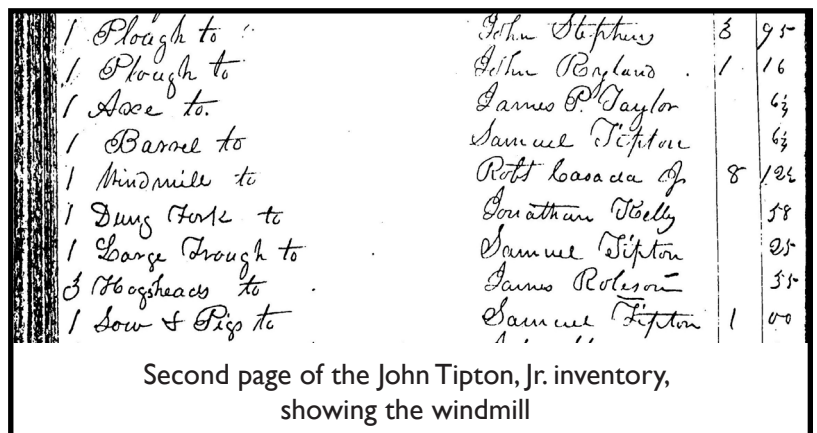 1 Plough to John Stephens 3 95
1 Plough to John Ryland . 1 16
1 Axe to. James P. Taylor 6¼
1 Barrel to Samuel Tipton 6¼
1 Windmill to Robt Casada Jr 8 12½
1 Dung Fork to Jonathan Kelly 58
1 Large Trough to Samuel Tipton 25
3 Hogsheads to James Roleson 55
1 Sow & Pigs to Samuel Tipton 1 00
Second page of the John Tipton, Jr. inventory,
showing the windmill